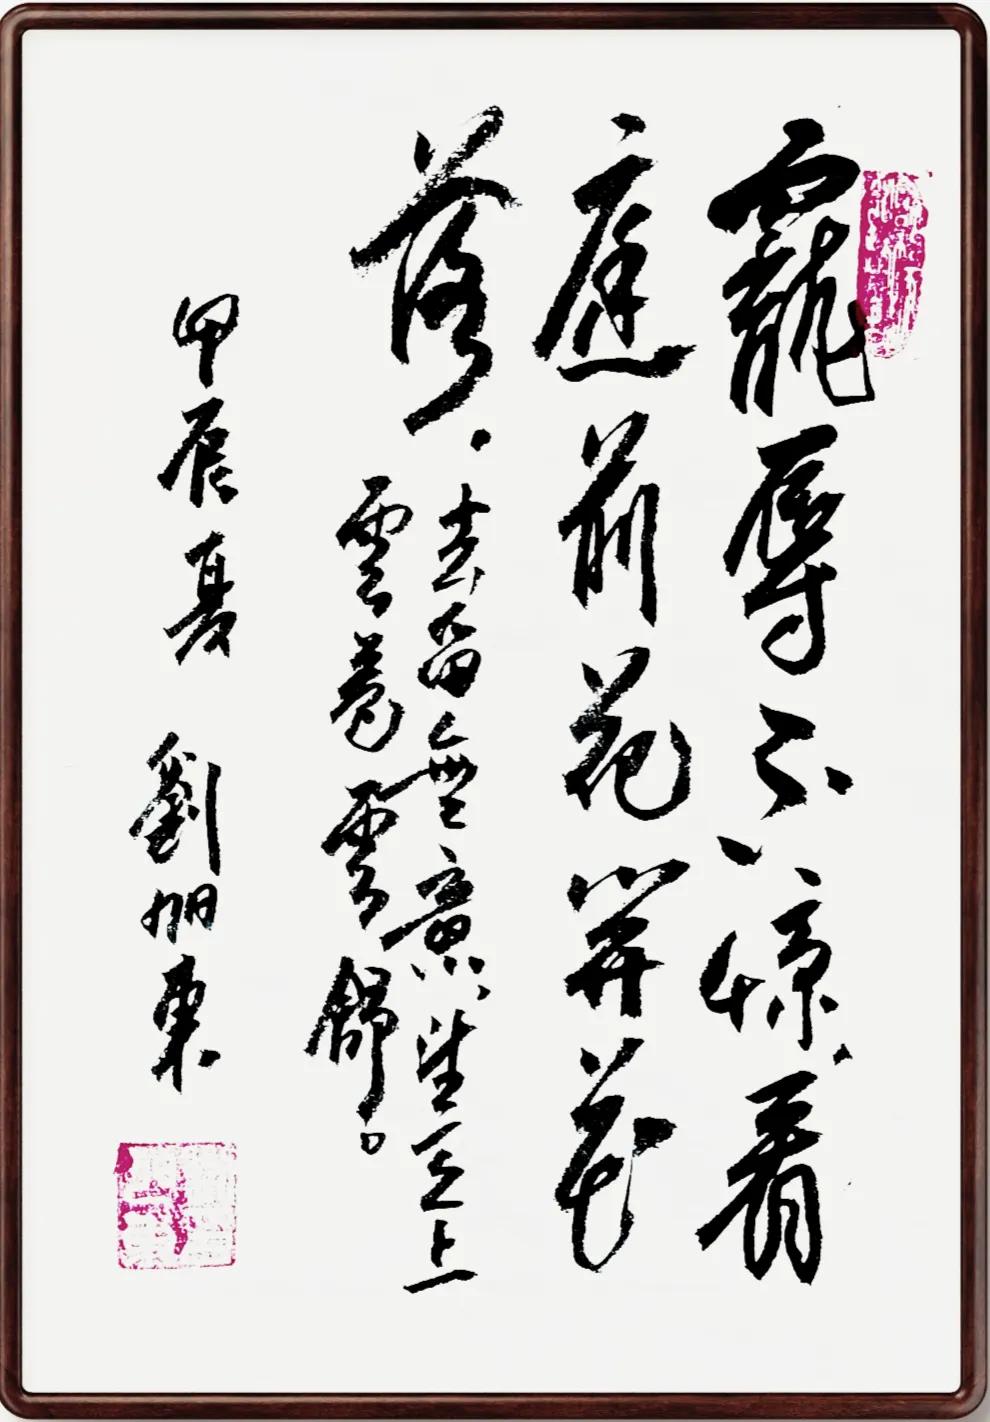 寵辱不惊，看
庭前花開花
落，
去留無意，望天上
雲卷雲舒。
甲辰夏 劉朋東